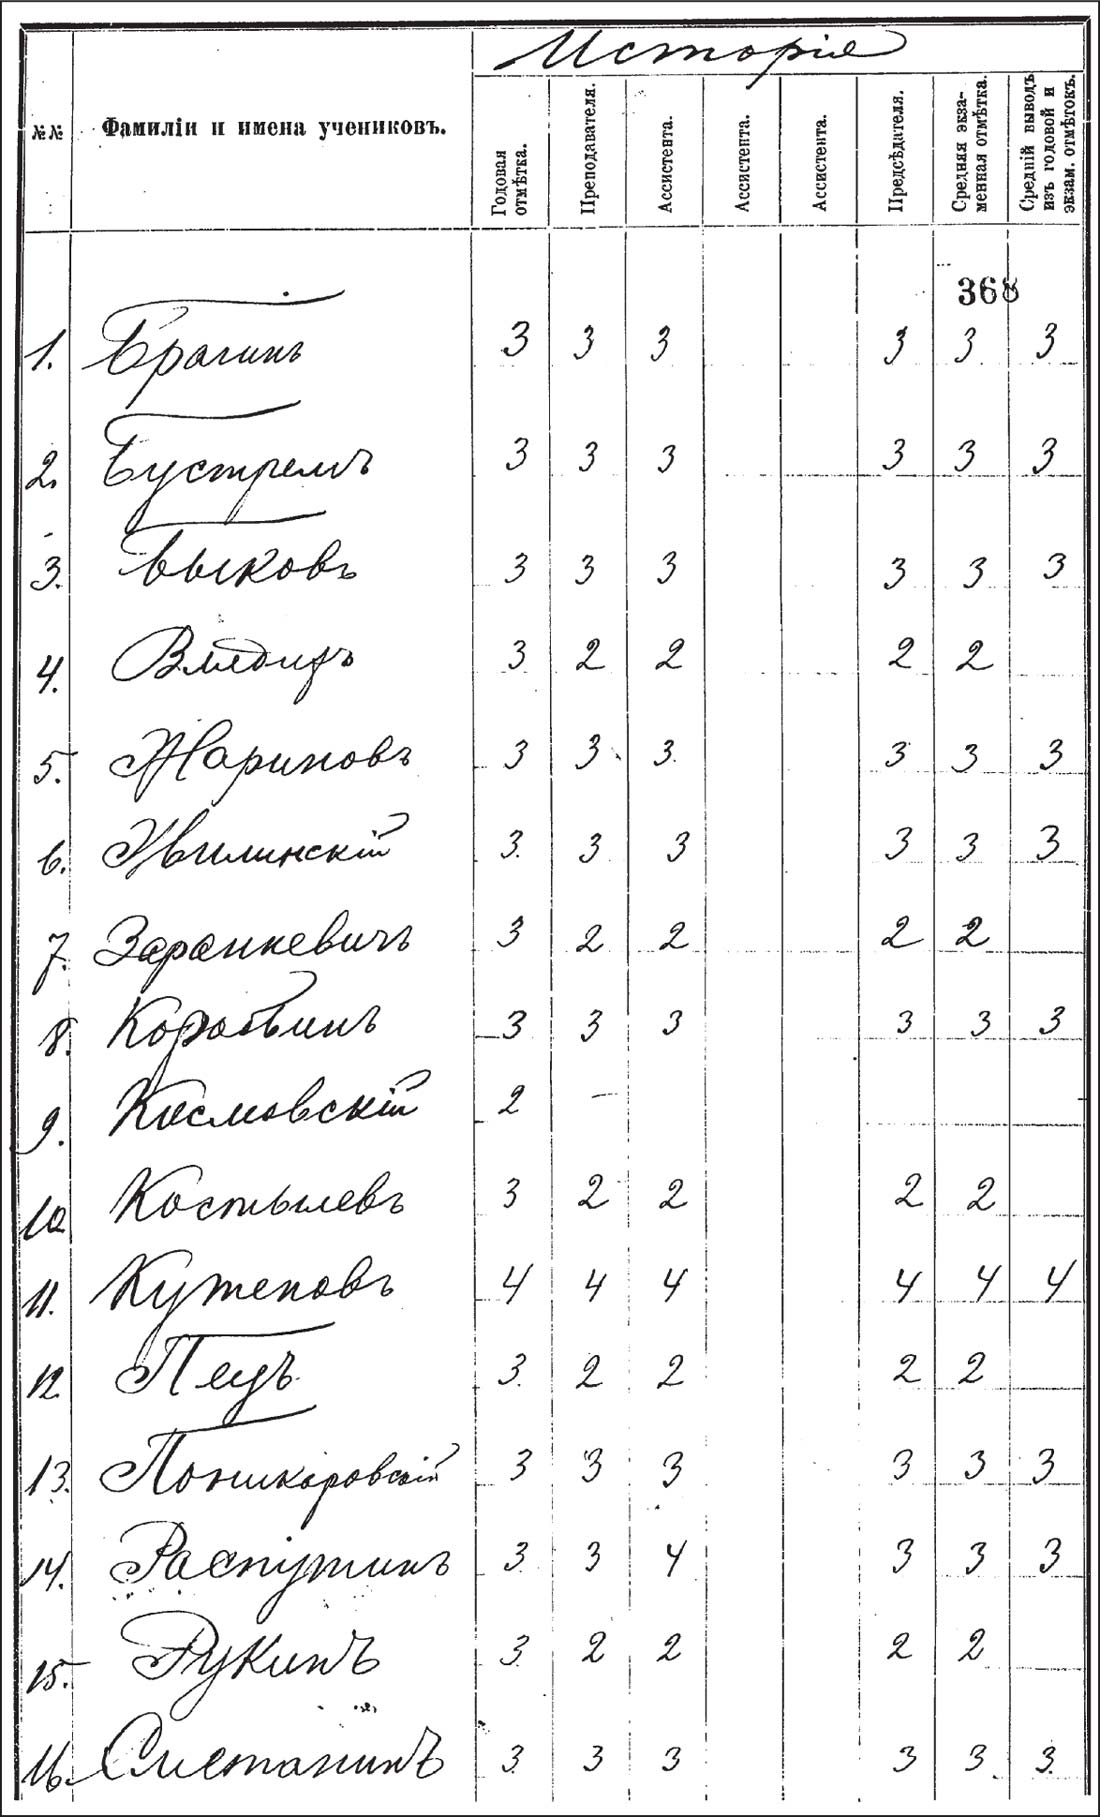 Исторія
№№ Фамиліи и имена учениковъ. Годовая отмѣтка. Преподавателя. Ассистента. Ассистента. Ассистента. Предсѣдателя. Средняя экза-менная отмѣтка. Средній выводъ изъ годовой и экзам. отмѣтокъ.
368
1. Брагинъ 3 3 3 3 3 3
2. Бустремъ 3 3 3 3 3 3
3. Быковъ 3 3 3 3 3 3
4. 3 2 2 2 2
5. Жариновъ 3 3 3 3 3 3
6. Жвилинскій 3 3 3 3 3 3
7. Заранкевичъ 3 2 2 2 2
8. Коробьинъ 3 3 3 3 3 3
9. Космовскій 2 –
10 Костылевъ 3 2 2 2 2
11. Кутеповъ 4 4 4 4 4 4
12. Пецъ 3 2 2 2 2
13. Поникаровскій 3 3 3 3 3 3
14. Распутинъ 3 3 4 3 3 3
15. Рукинъ 3 2 2 2 2
16. Сметанинъ 3 3 3 3 3 3